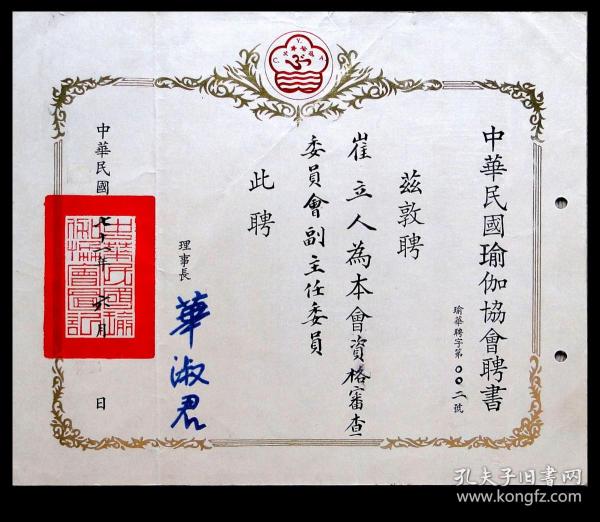 中華民國瑜伽協會聘書
瑜華聘字第〇〇二號
茲敦聘
崔立人為本會資格審查
委員會副主任委員
此聘
理事長
華淑君
中華民國七十二年 六月 日
C.Y.A
孔夫子旧书网
www.kongfz.com